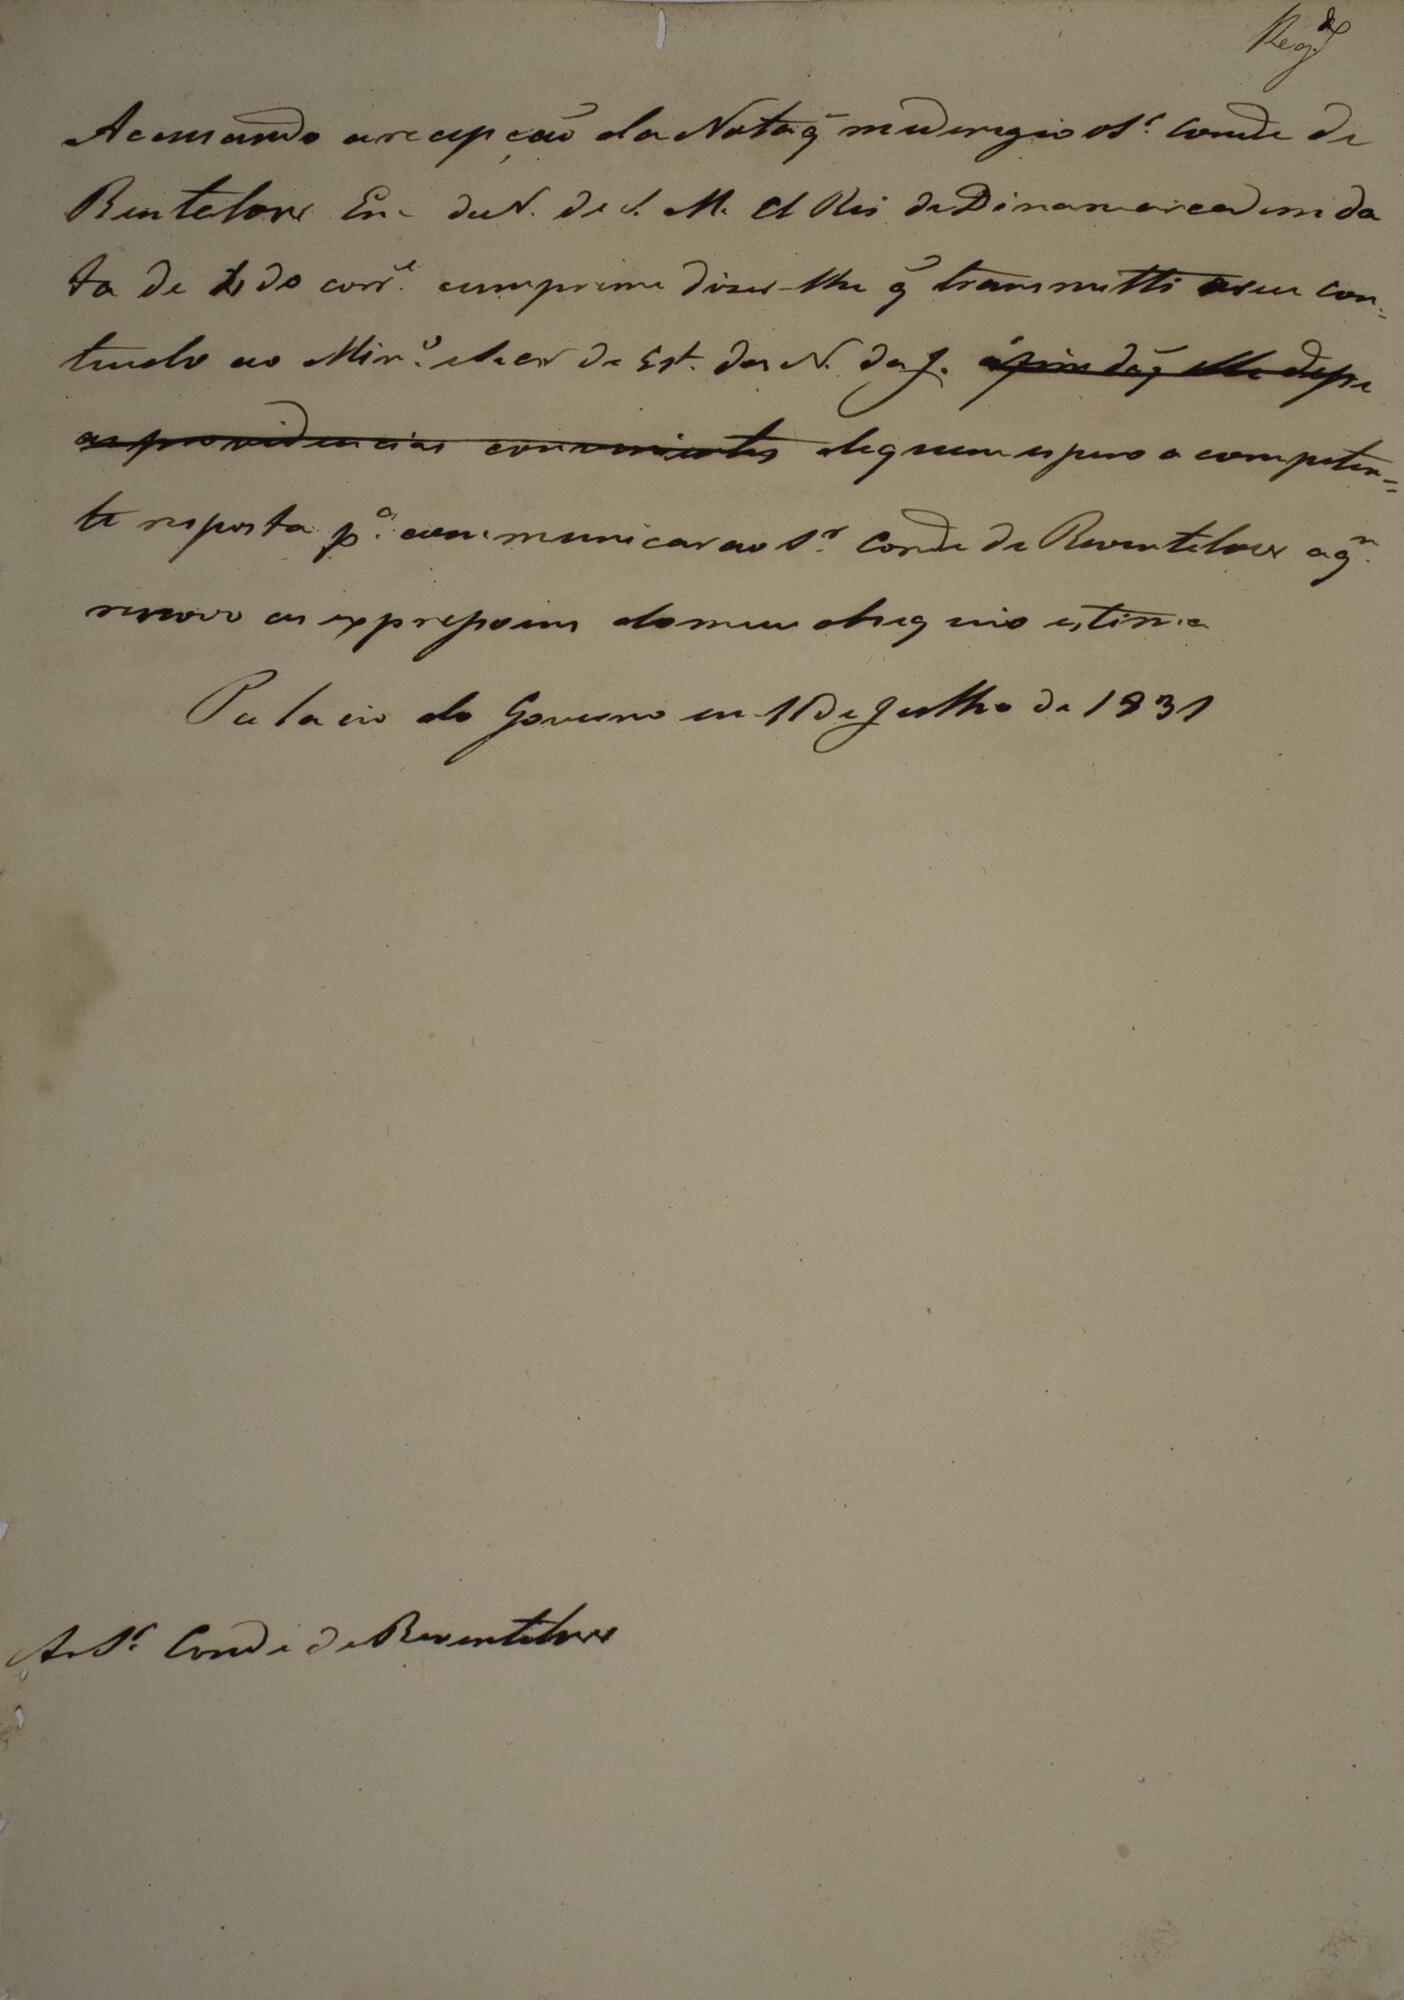 Reg.do
Accusando a recepção da Nota q̃ me dirigio o Sr. Conde de
Reventelow En. de N. de S. M. El Rei de Dinamarca em da
ta de do corr.e cumpre-me dizer-lhe q̃ transmitti o seu con-
teudo ao Min.o e Secr de Est. dos N. da J. a fim de q̃ elle désse
as providencias convenientes de quem espero a competen-
te resposta p.a communicar ao Sr. Conde de Reventelow a q.m
renovo as expressoens do meu obsequio e estima
Palacio do Governo em 11 de Julho de 1831
Ao Sr. Conde de Reventelow